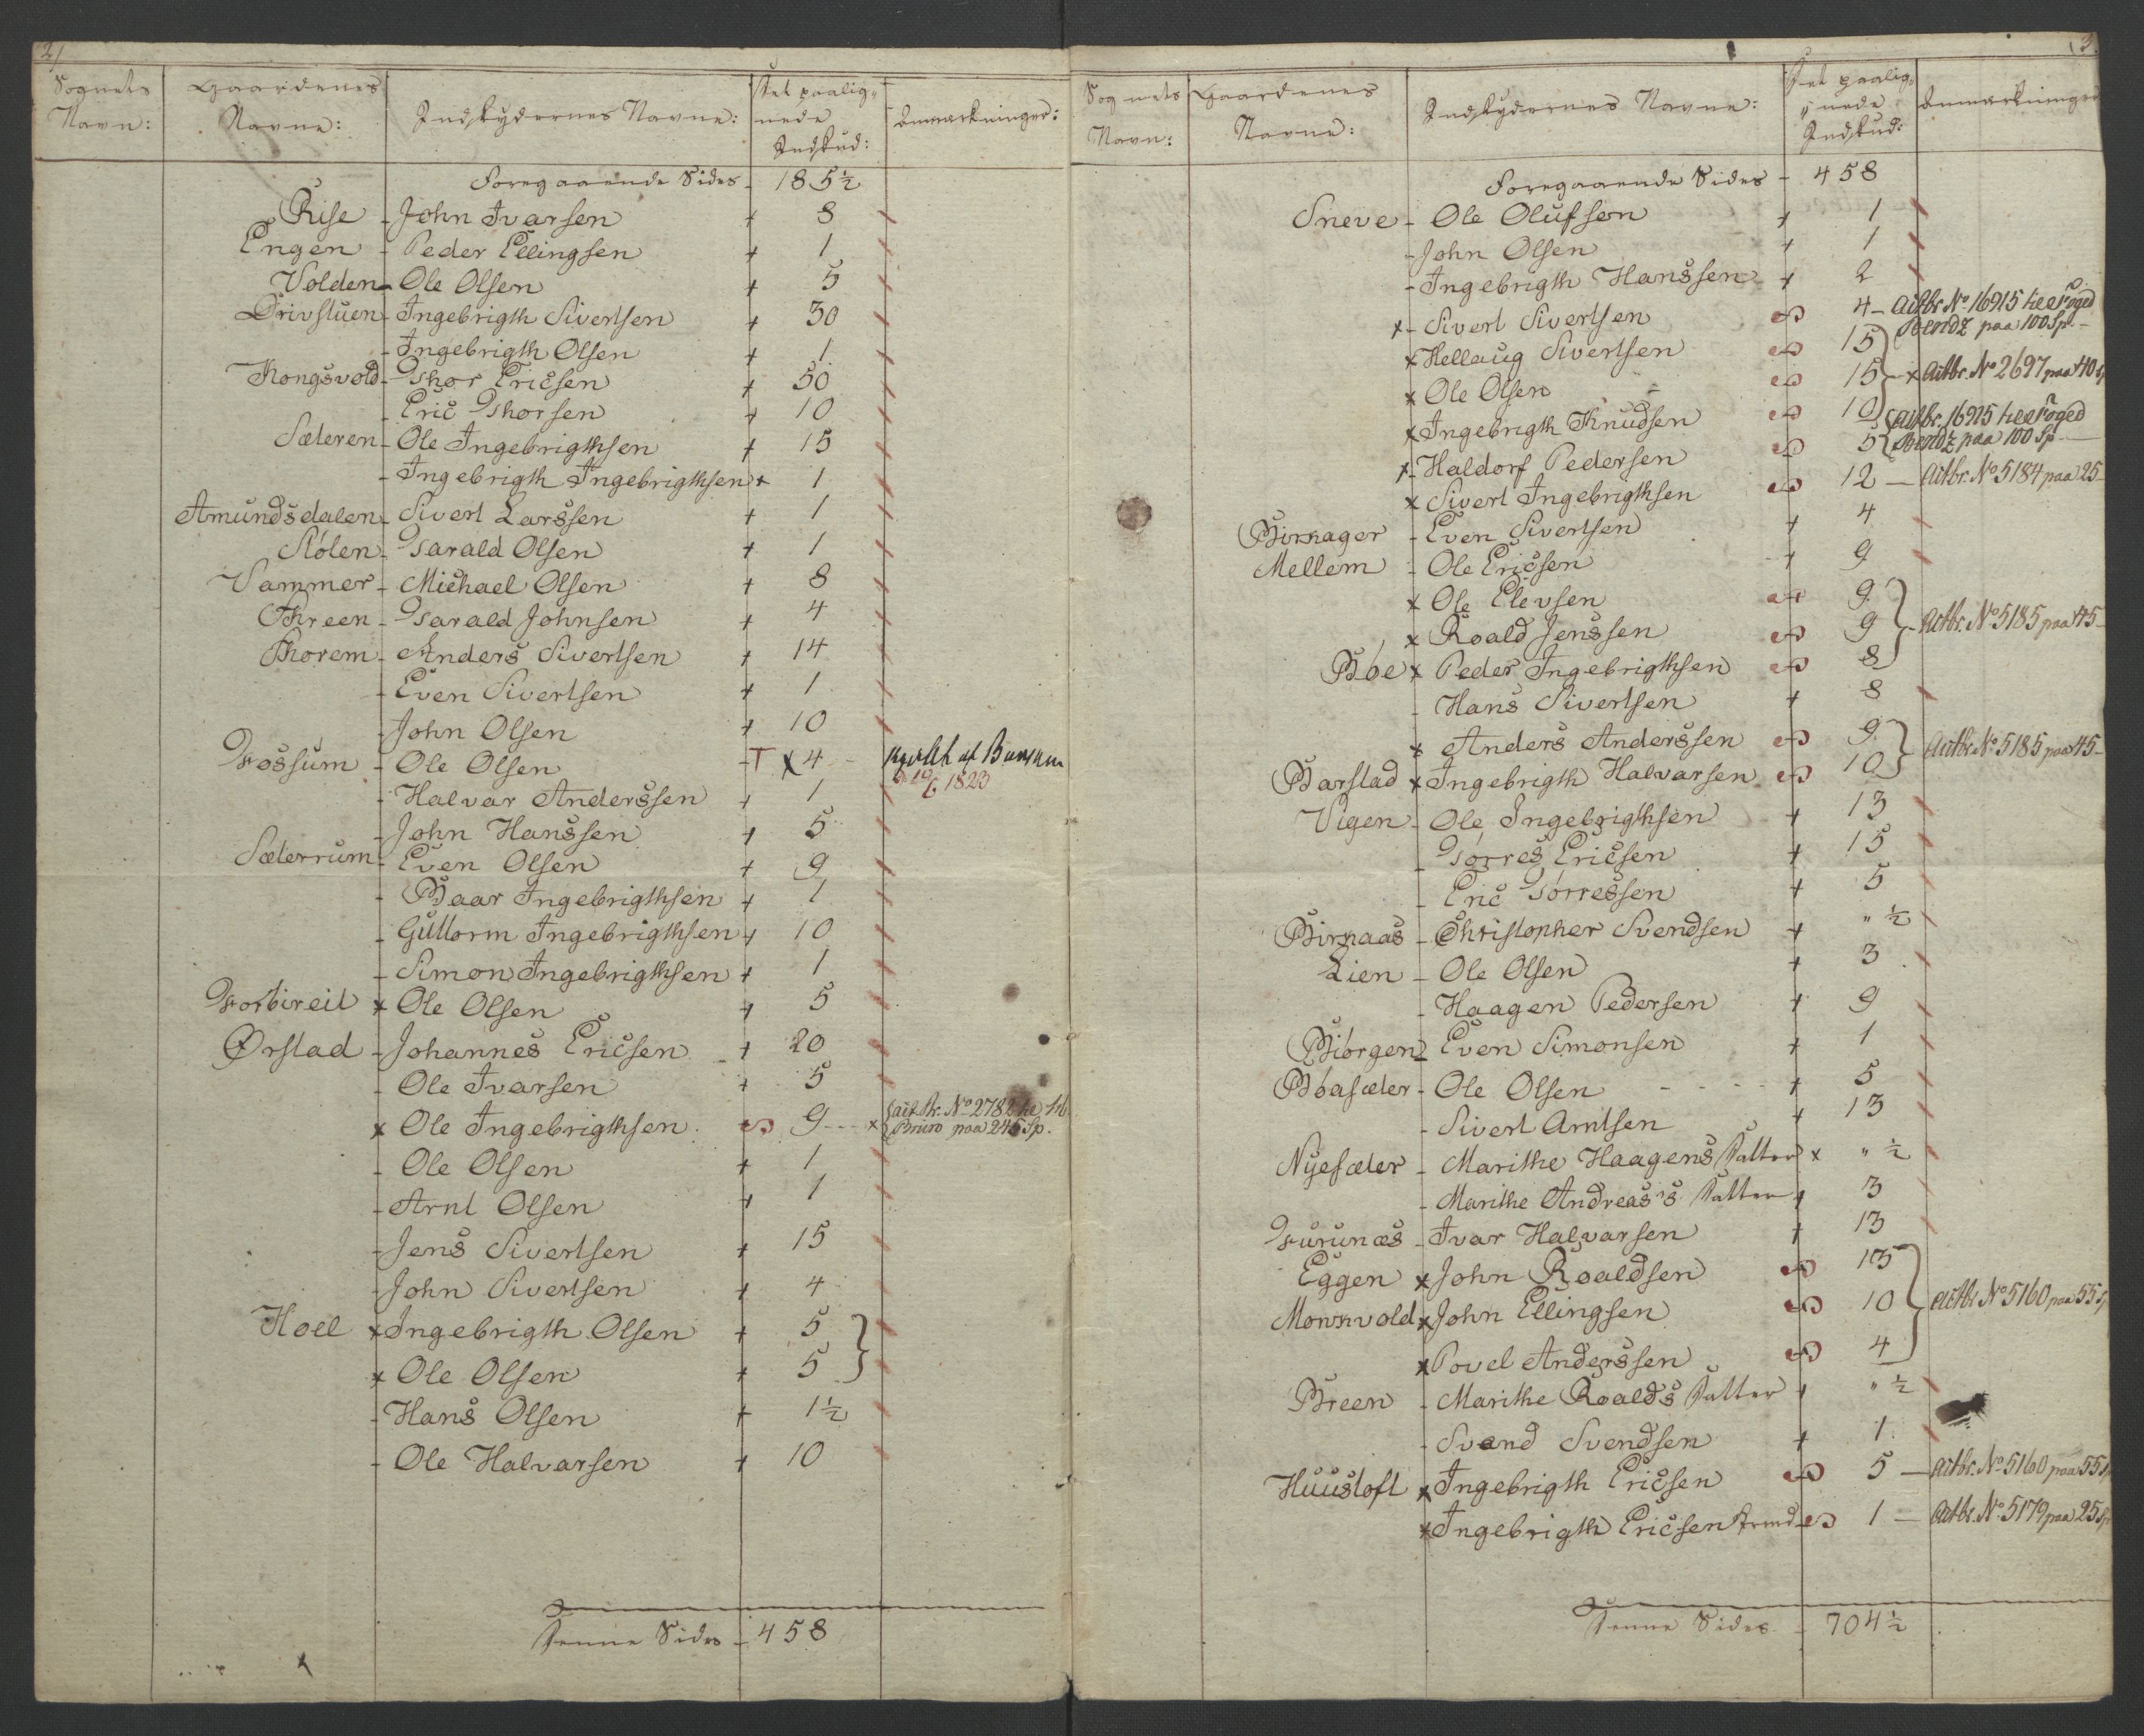 2/
Sognets Navn: Gaardenes Navne: Indskydernes Navne: Det paalignede Indskud: Anmærkninger:
Foregaaende Sides - 185½
Rise - John Ivarsen + 8
Engen - Peder Ellingsen + 1
Volden - Ole Olsen + 5
Drivstuen - Ingebrigth Sivertsen + 30
- Ingebrigth Olsen + 1
Kongsvold - Thor Ericsen + 50
- Eric Thorsen + 10
Sæteren - Ole Ingebrigthsen + 15
- Ingebrigth Ingebrigthsen + 1
Amundsdalen - Sivert Larssen + 1
Stölen - Harald Olsen + 1
Vammer - Michael Olsen + 8
Threen - Harald Johnsen + 4
Thorem - Anders Sivertsen + 14
- Even Sivertsen + 1
- John Olsen + 10
Fossum - Ole Olsen - T x 4 -
1823
- Halvar Anderssen + 1
- John Hanssen + 5
Sæterrum - Even Olsen + 9
- Baar Ingebrigthsen + 1
- Guttorm Ingebrigthsen + 10
- Simon Ingebrigthsen + 1
Forbireit x Ole Olsen + 5
Ørstad - Johannes Ericsen + 20
- Ole Ivarsen + 5
x Ole Ingebrigthsen 9 - x Actbr. No 2782 paa 245 Sp.
- Ole Olsen + 1
- Arnt Olsen + 1
- Jens Sivertsen + 15
- John Sivertsen + 4
Hoel x Ingebrigth Olsen + 5
x Ole Olsen + 5
- Hans Olsen + 1½
- Ole Halvarsen + 10
Denne Sides - 458
3
Sognets Navn: Gaardenes Navne: Indskydernes Navne: Det paalignede Indskud: Anmærkninger
Foregaaende Sides - 458
Sneve - Ole Olufsen + 1
- John Olsen + 1
- Ingebrigth Hanssen + 2
x - Sivert Sivertsen 4 - Actbr. No 16915 til Foged Bendz paa 100 Sp. -
x Hellaug Sivertsen 15
x Ole Olsen 15 - x Actbr. No 2697 paa 40 Sp
x Ingebrigth Knudsen 10 Actbr. 16915 til Foged
x - Haldorf Pedersen 5 Bendz paa 100 Sp -
x Sivert Ingebrigthsen 12 - Actbr. No 5184 paa 25 -
Birkager - Even Sivertsen + 4
Mellem - Ole Ericsen + 9
x Ole Elevsen 9
x Roald Jenssen 9 - Actbr. No 5185 paa 45 -
Böe x Peder Ingebrigthsen 8
- Hans Sivertsen + 8
x Anders Anderssen 9 Actbr. No 5185 paa 45 -
Barstad x Ingebrigth Halvarsen 10
Vigen - Ole Ingebrigthsen + 13
- Törres Ericsen + 15
- Eric Törressen + 5
Birkaas - Christopher Svendsen + " ½
Lien - Ole Olsen + 3
- Haagen Pedersen + 9
Biörgen - Even Simonsen + 1
Böasæter - Ole Olsen - - - - + 5
- Sivert Arntsen + 13
Nyesæter - Marithe Haagens Datter x " ½
- Marithe Andreas's Datter + 3
Furunæs - Ivar Halvarsen + 13
Eggen x John Roaldsen 13
Monkvold x John Ellingsen 10 Actbr. No 5160 paa 55 Sp
x Povel Anderssen 4
Breen - Marithe Roalds Datter + " ½
- Svend Svendsen + 1
Huustoft x Ingebrigth Ericsen 5 - Actbr. No 5160 paa 55 Sp
x Ingebrigth Ericsen 1 - Actbr. No 5179 paa 25 Sp
Denne Sides - 704½